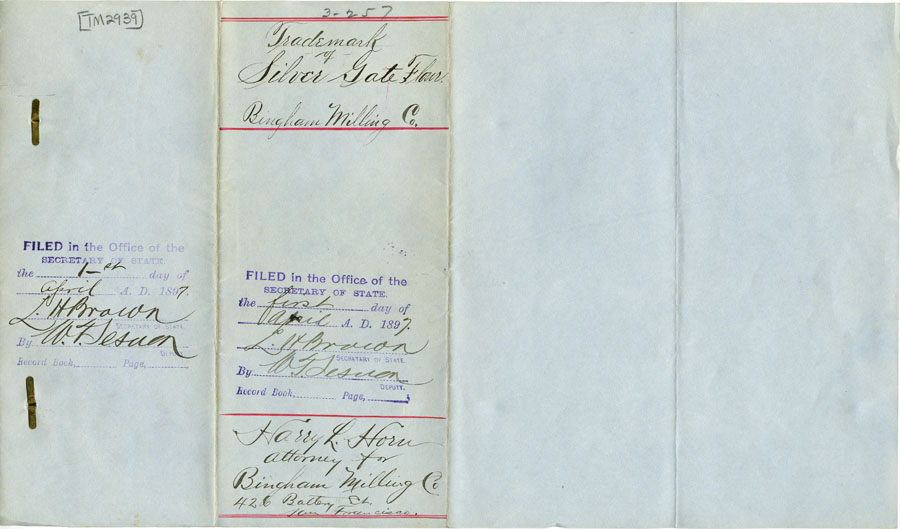 [TM2939]
FILED in the Office of the
SECRETARY OF STATE.
the 1st day of
April A. D. 1897.
L. H. Brown
SECRETARY OF STATE.
By W. F.
DEPUTY.
Record Book, Page,
3-257
Trademark
of
Silver Gate Flour.
Bingham Milling Co.
FILED in the Office of the
SECRETARY OF STATE.
the first day of
April A. D. 1897.
L. H. Brown
SECRETARY OF STATE.
By W. F.
DEPUTY.
Record Book, Page,
Harry L. Horn
attorney for
Bingham Milling Co
426 Battery St.
San Francisco.